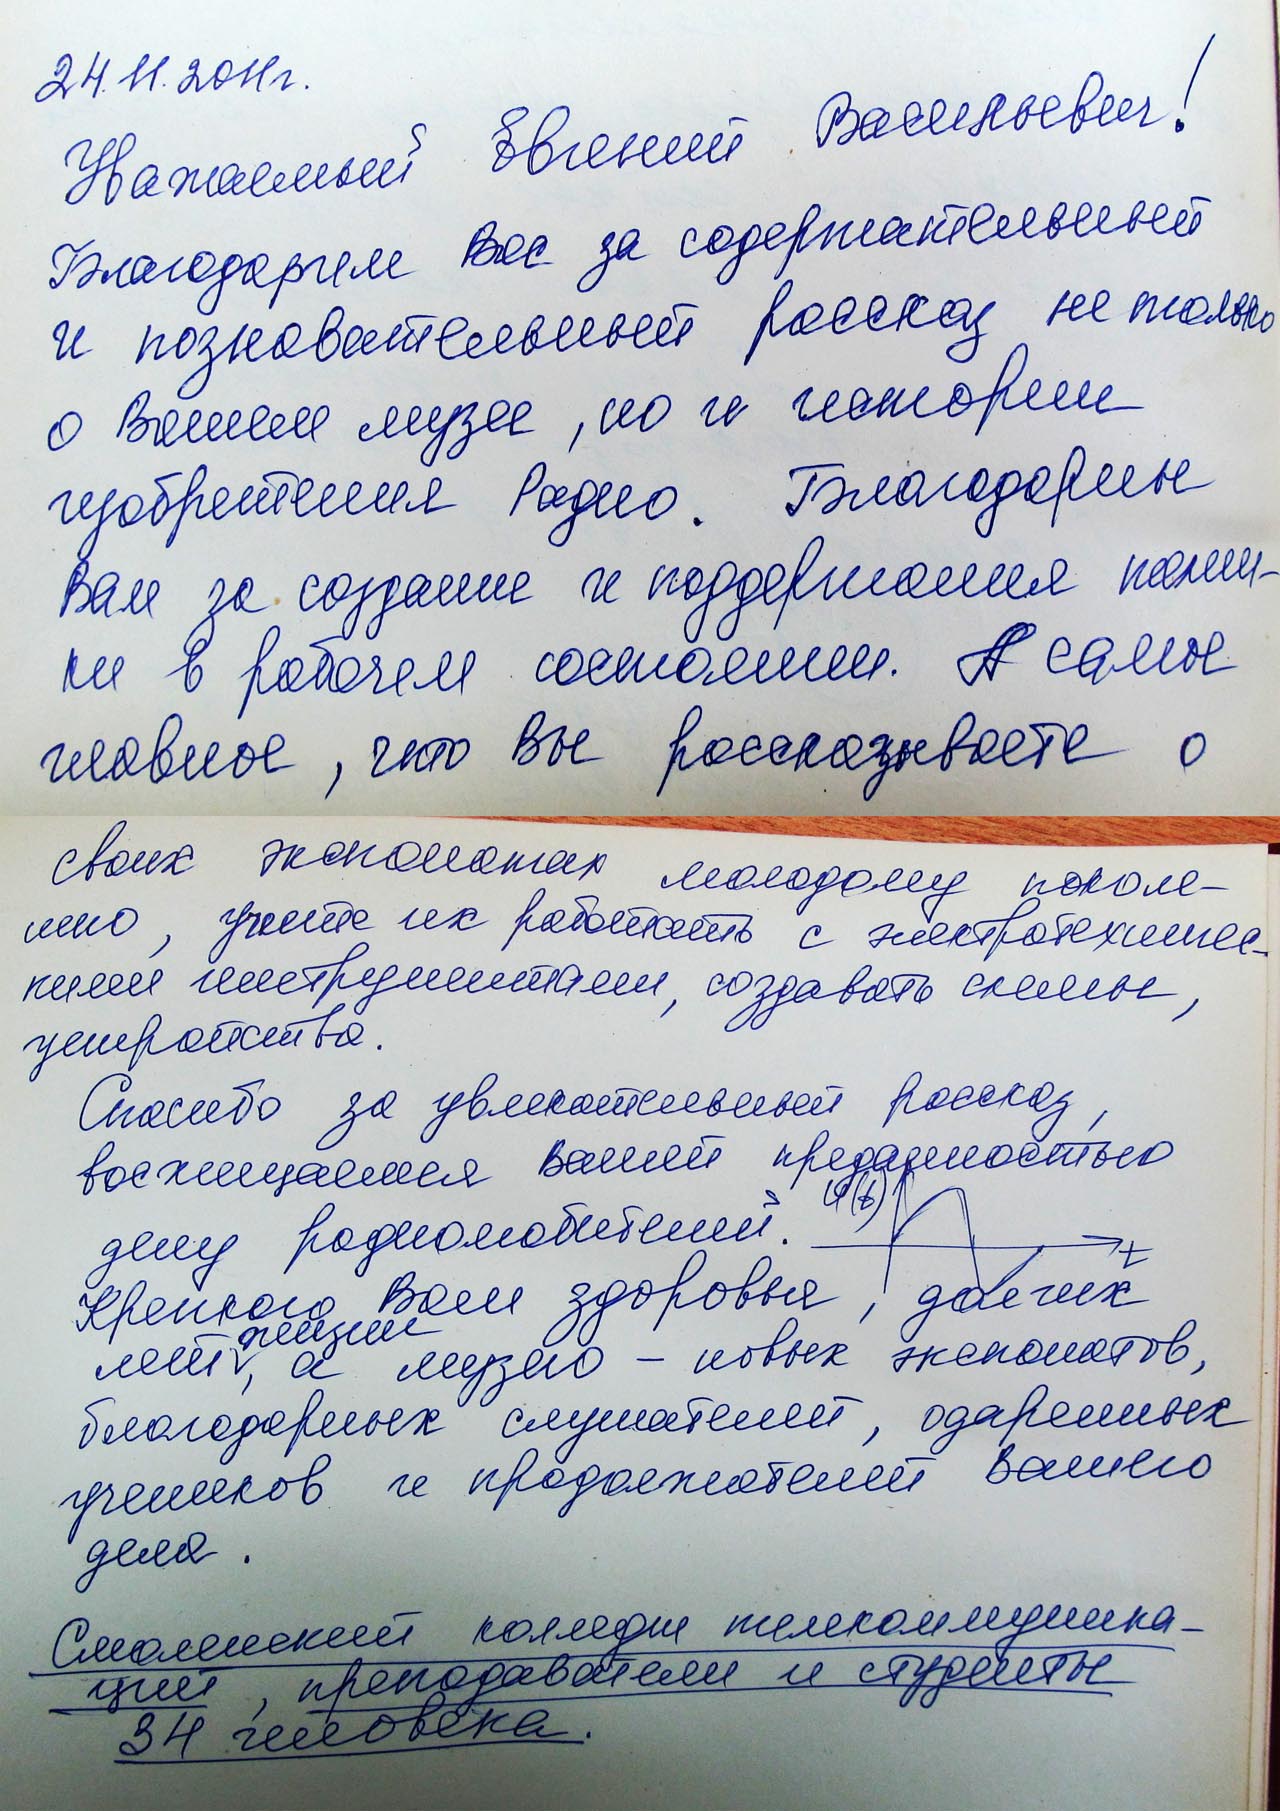 24.11.2011г.
Уважаемый Евгений Васильевич!
Благодарим Вас за содержательный
и познавательный рассказ не только
о Вашем музее, но и истории
изобретения Радио. Благодарны
Вам за создание и поддержания
ки в рабочем состоянии. А самые
главное, что Вы рассказываете о
своих экспонатах молодому поколе-
нию, учите их работать с электротехничес-
кими инструментами, создавать схемы,
устройства.
Спасибо за увлекательный рассказ,
восхищаемся Вашей преданностью
делу радиолюбителей. U(t) t
Крепкого Вам здоровья, долгих
лет жизни, а музею – новых экспонатов,
благодарных слушателей, одаренных
учеников и продолжателей Вашего
дела.
Смоленский колледж телекоммуника-
ций, преподаватели и студенты
34 человека.